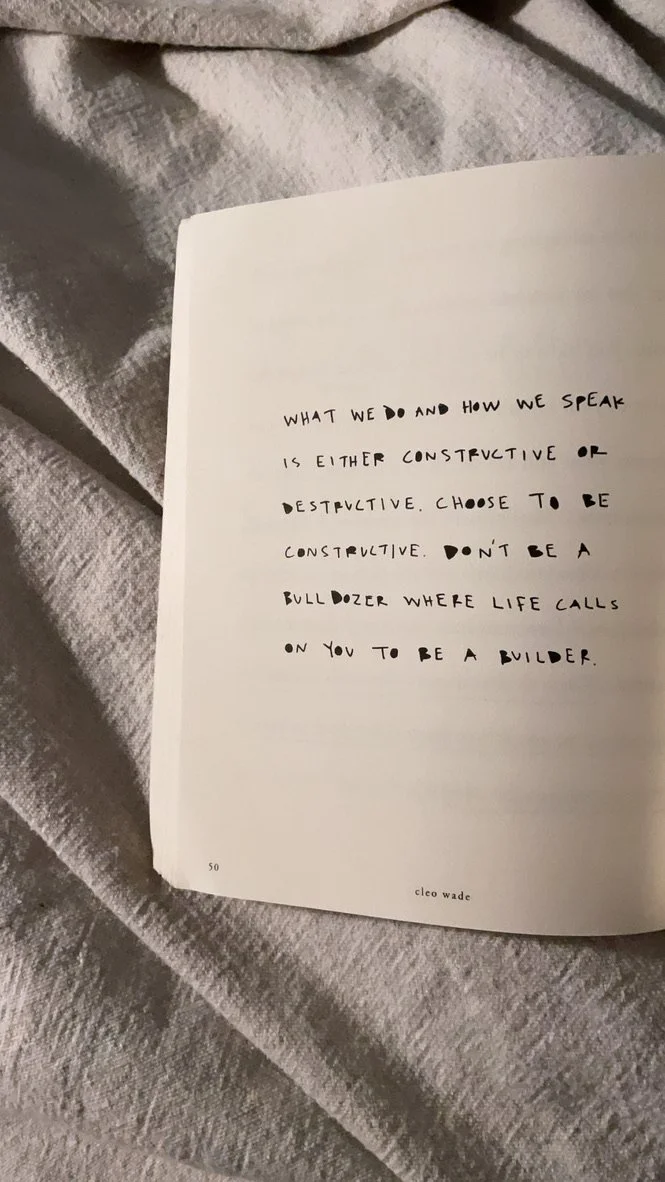 WHAT WE DO AND HOW WE SPEAK
IS EITHER CONSTRUCTIVE OR
DESTRUCTIVE. CHOOSE TO BE
CONSTRUCTIVE. DON'T BE A
BULLDOZER WHERE LIFE CALLS
ON YOU TO BE A BUILDER.
50
cleo wade